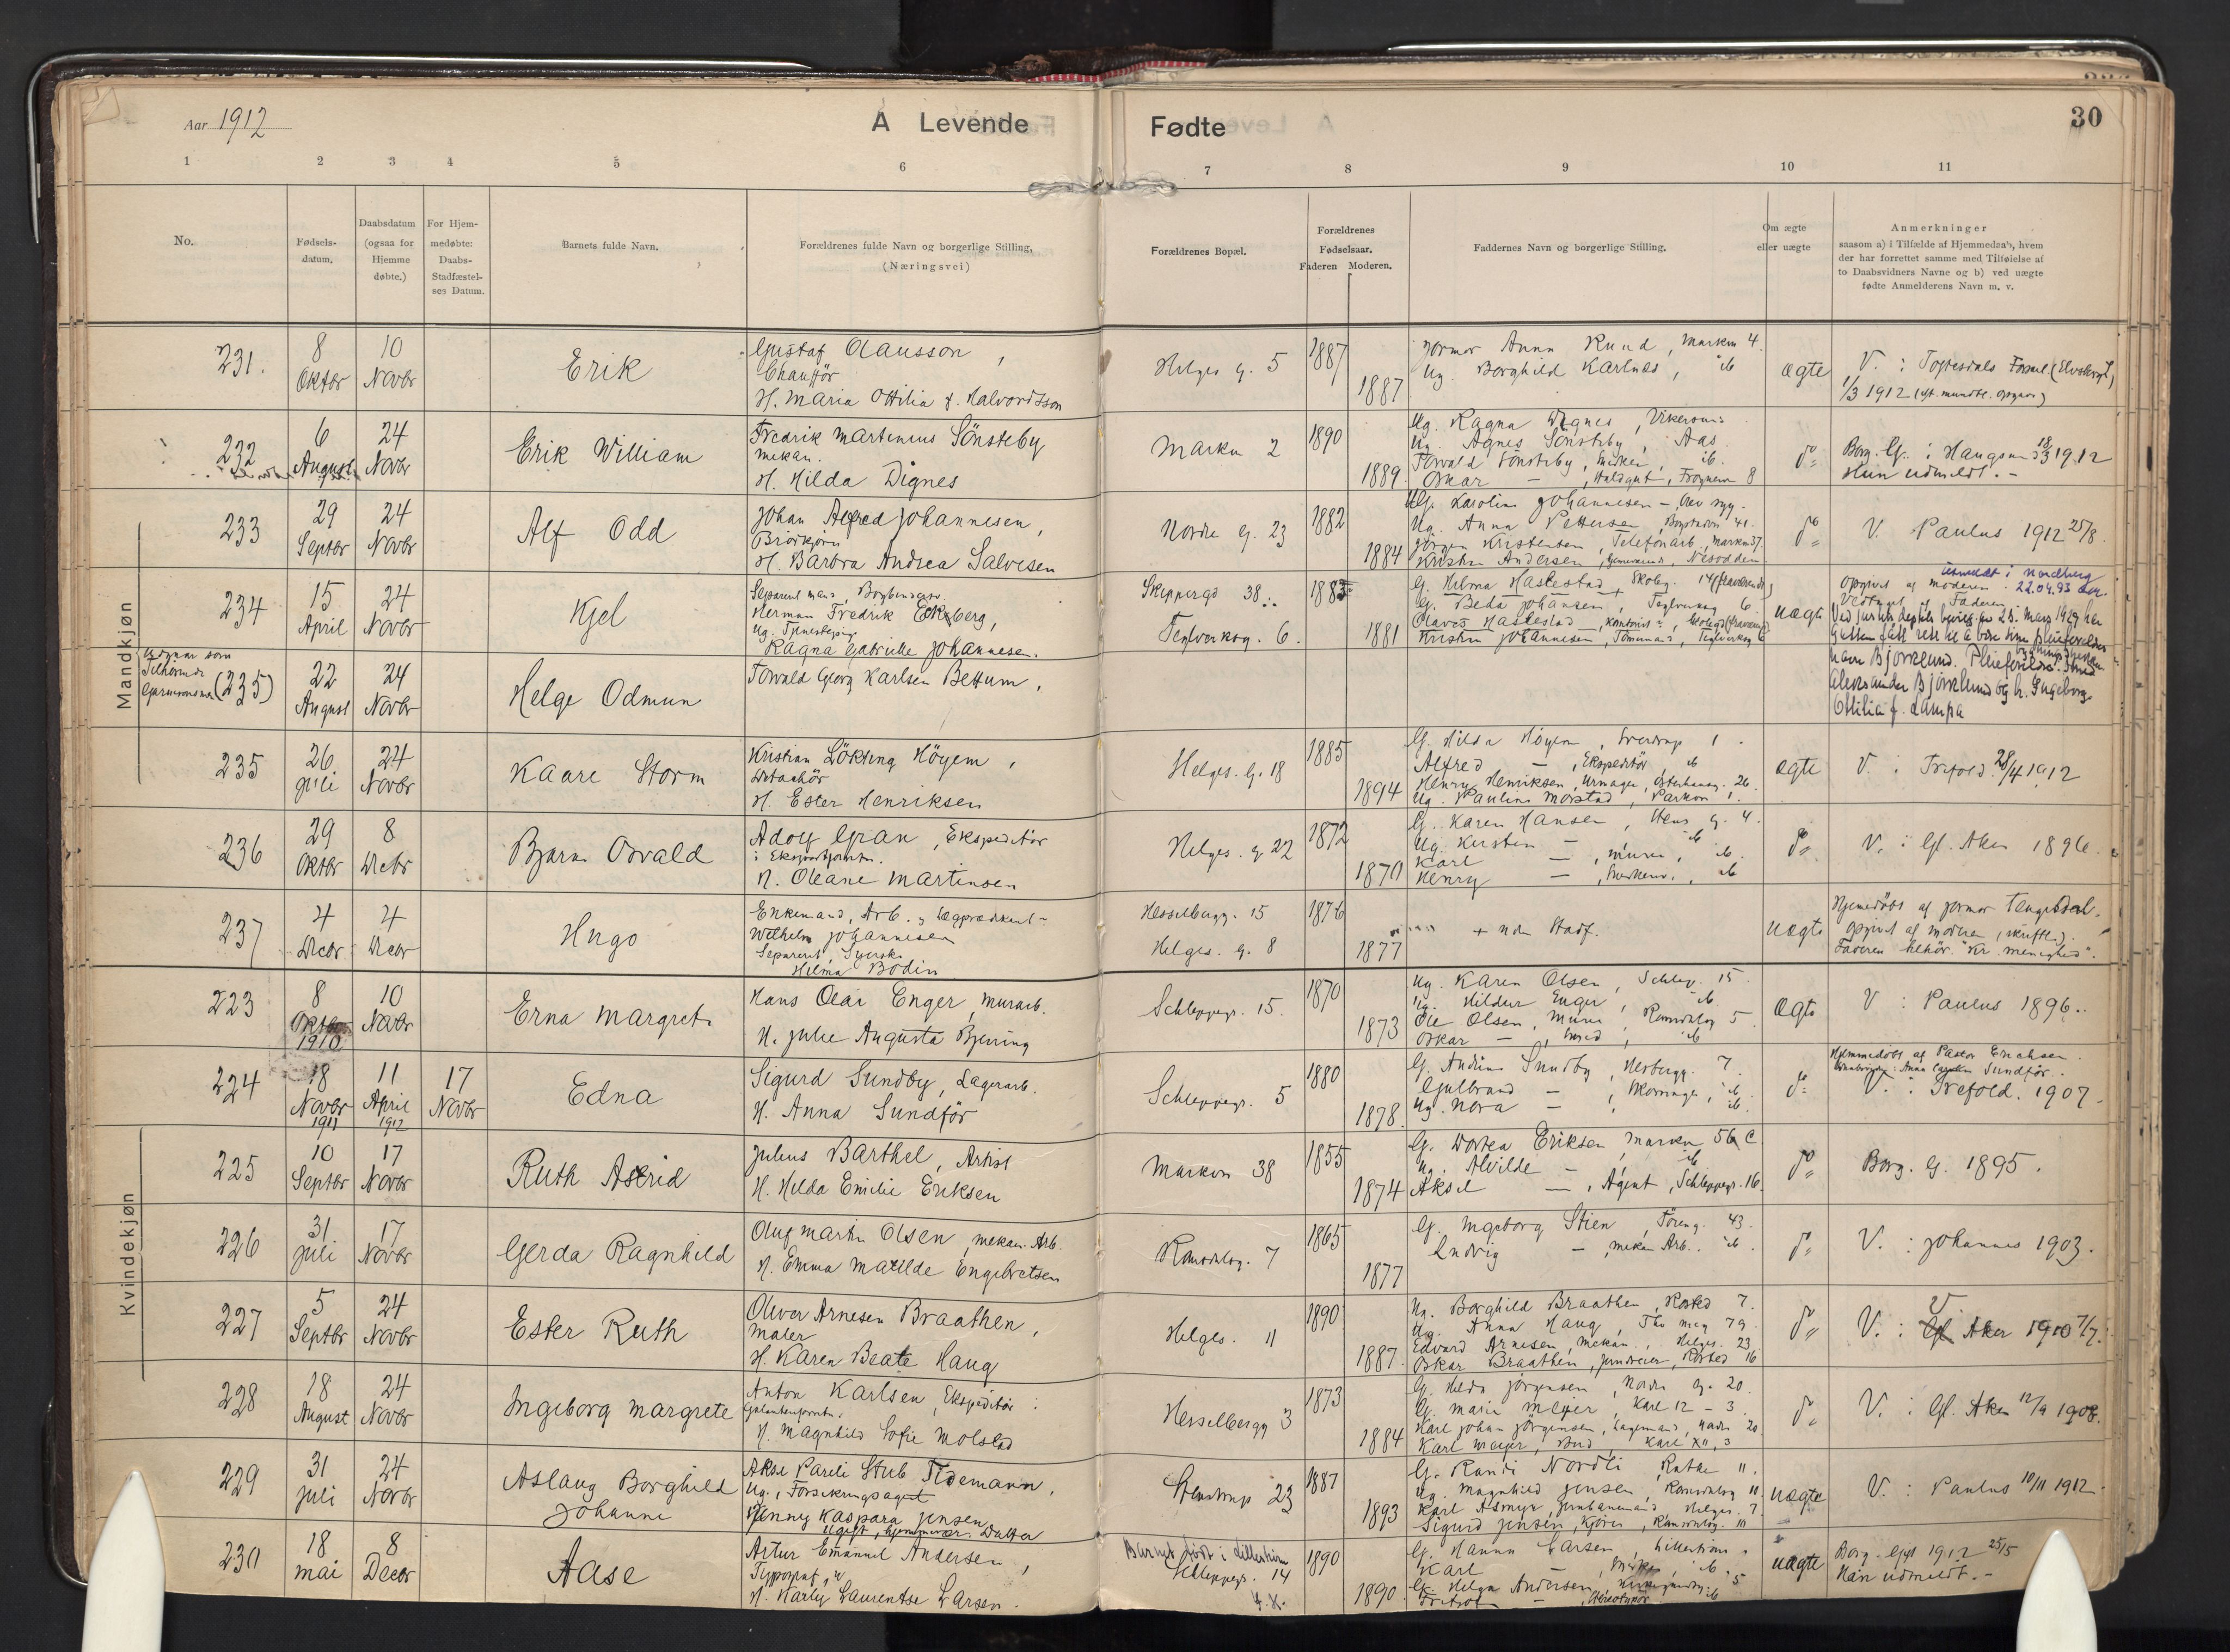 Aar 1912
A Levende
Fødte
30
1 2 3 4 5 6 7 8 9 10 11
No.
Fødsels-
datum.
Daabsdatum
(ogsaa for
Hjemme
døbte.)
For Hjem-
medøbte:
Daabs-
Stadfæstel-
ses Datum.
Barnets fulde Navn.
Forældrenes fulde Navn og borgerlige Stilling.
(Næringsvei)
Forældrenes Bopæl.
Forældrenes
Fødselsaar.
Faderen Moderen.
Faddernes Navn og borgerlige Stilling.
Om ægte
eller uægte
Anmerkninger
saasom a) i Tilfælde af Hjemmedaab, hvem
der har forrettet samme med Tilføielse af
to Daabsvidners Navne og b) ved uægte
fødte Anmelderens Navn m. v.
Mandkjøn
Kvindekjøn
231.
8
Oktbr
10
Novbr
Erik
Gustaf Olausson,
Chauffør
H. Maria Ottilia f. Halvordsson
Helges g. 5
1887
1887
Anna Rund, Markv 4.
Ug. Borghild Karlnæs, ib
ægte
1/3 1912
232
6
August
24
Novbr
Erik William
Fredrik Martinius Sönsteby
mekan.
H. Hilda Dignes
Markv 2
1890
1889
Ug. Ragna Dignes, Vikersund
Ug. Agnes Sönsteby, Aas
Torvald Sönsteby, ib.
Oskar —
do
Borg. Gj. i Haugesund 18/3 1912
Hun udmeldt. -
233
29
Septbr
24
Novbr
Alf Odd
Johan Alfred Johannesen,
Brödkjörer
H. Barbra Andrea Salvesen
Nordre g. 23
1882
1884
G. Karoline Johannesen
Ug. Anna Pettersen 41.
Jörgen Kristensen, Telefonarb., Markv 37.
Kristian Andersen, Nesodden
do
V. Paulus 1912 25/8.
234
15
April
24
Novbr
Kjel
Separert mand, Bogbindersv.
Herman Fredrik Ekberg,
Ug. Tjenestepige
Ragna Gabrielle Johannesen.
Skippergd 38
Teglverksg. 6.
1883
1881
G. Helma Hastestad
G. Beda Johansen, Teglverksg 6.
Olaves Hastestad, Kontorist
Kristian Johannesen, Teglverksg 6
uægte
utmeldt i Nordberg
22.04.93
Opgivet af moderen
Vedtaget af Faderen
Ved Just. deptets bevilg. av 25. mars 1929 har
gutten fått rett til å bære sine pleieforeldres
navn Bjørklund.
Aleksander Bjørklund og h. Ingeborg
Ottilia f. Lampa
(235)
22
August
24
Novbr
Helge Odmun
Torvald Georg Karlsen Bettum,
235
26
juli
24
Novbr
Kaare Storm
Kristian Lökting Höyem,
H. Ester Henriksen
Helges. g. 18
1885
1894
G. Hilda Höyem, Sverdrup 1.
Alfred —, Ekspeditör, ib
Henry Henriksen, Urmager, 26
Ug. Pauline Morstad, Parkvn 1.
ægte
V. i Trefold. 28/4 1912
236
29
Oktbr
8
Decbr
Bjarne Osvald
Adolf Gran, Ekspeditör
H. Oleane Martinsen
Helges. g 22
1872
1870
G. Karen Hansen, Stens g. 4.
Ug. Kirsten — ib
Karl —, murer, ib.
Henry — ib
do
V. i Gl. Aker 1896.
237
4
Decbr
4
Decbr
Hugo
Enkemand, Arb. og Lægprædikant
Wilhelm Johannesen
Separert, Syerske
Hilma Bodin
Hesselbergg. 15
Helges. g. 8
1876
1877
+ uden Stadf.
uægte
Hjemedöbt af jormor Tengesdal.
Opgivet af moderen (skriftl.).
Faderen tilhör. "Kr. menighed".
223
8
Oktbr
1910
10
Novbr
Erna Margrete
Hans Olai Enger, murarb.
H. Julie Augusta Bjerring
Schleppegr. 15.
1870
1873
Ug. Karen Olsen, Schlep. 15
Ug. Hildur Enger, ib
Ole Olsen, murer, Romsdalsg 5
Oskar —, smed, ib
ægte
V : Paulus 1896.
224
18
Novbr
1911
11
April
1912
17
Novbr
Edna
Sigurd Sundby, Lagerarb.
H. Anna Sundför
Schleppegr. 5
1880
1878.
G. Andine Sundby, 7.
Gulbrand — ib
Ug. Nora — ib.
do
Hjemmedöbt af Pastor Erichsen.
Sundför.
V. : Trefold. 1907.
225
10
Septbr
17
Novbr
Ruth Astrid
Julius Barthel, Artist
H. Hilda Emilie Eriksen
Markvn 38
1855
1874
G. Dortea Eriksen, Markvn 56 C
Ug. Alvilde — ib
Aksel —, Agent, Schleppegr. 16.
do
Borg. G. 1895.
226
31
juli
17
Novbr
Gerda Ragnhild
Oluf Martin Olsen, mekan. Arb.
H. Emma Matilde Engebretsen
Romsdalsg. 7
1865
1877
G. Ingeborg Stien, 43.
Ludvig —, mekan Arb., ib.
do
V. : Johannes 1903.
227
5
Septbr
24
Novbr
Ester Ruth
Oliver Arnesen Braathen,
Maler
H. Karen Beate Haug
Helges. 11
1890
1887.
Ug. Borghild Braathen, Rosted 7.
Ug. Anna Haug, 79.
Edvard Arnesen, mekan., Helges. 23
Oskar Braathen, Rosted 16
do
V. : V Aker 1910 7/7.
228
18
August
24
Novbr
Ingeborg Margrete
Anton Karlsen, Ekspeditör
H. Magnhild Sofie Molstad
Hesselbergg 3
1873
1884
G. Helda Jörgensen, Nordre g. 20.
G. Marie Meyer, Karl 12 – 3.
Karl Johan Jörgensen, Lagermand, Nordre 20
Karl Meyer, Bud, Karl XII, 3
do
V. : Gl. Aker 12/9 1908.
229
31
juli
24
Novbr
Aslaug Borghild
Johanne
Aksel Pareli Stub Tidemann,
Ug., Forsikringsagent
Jenny Kaspara Jensen
Ugift, hjemmevær. Datter
Stenstrup 23
1887
1893
G. Randi Nordli, Ruthe 11.
Ug. Magnhild Jensen, Romsdalsg 11
Karl Asmyr, Jernbanemand, Helges. 7
Sigurd Jensen, Kjörer, Romsdalsg. 11
uægte
V. : Paulus 10/11 1912.
230
18
mai
8
Decbr
Aase
Artur Emanuel Andersen,
Typograf
H. Karly Laurentse Larsen.
Barnet född i Lilleström
Schleppegr. 14
1890
1890.
G. Hanna Larsen, Lilleström.
Karl — ib.
G. Helga Andersen, 5
—, Stereotypör. ib
uægte
Borg. Gift 1912 25/5
Han udmeldt. -